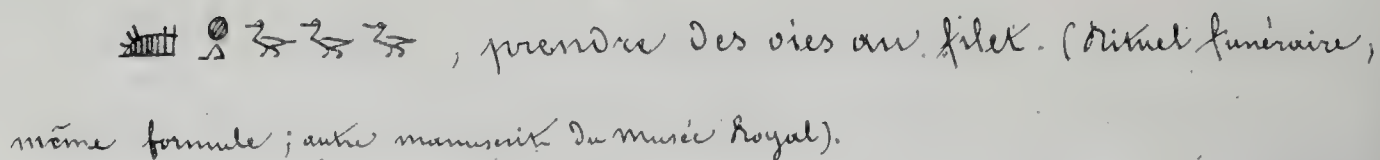 , prendre des oies au filet. (Rituel funéraire,
même formule ; autre manuscrit du Musée Royal).